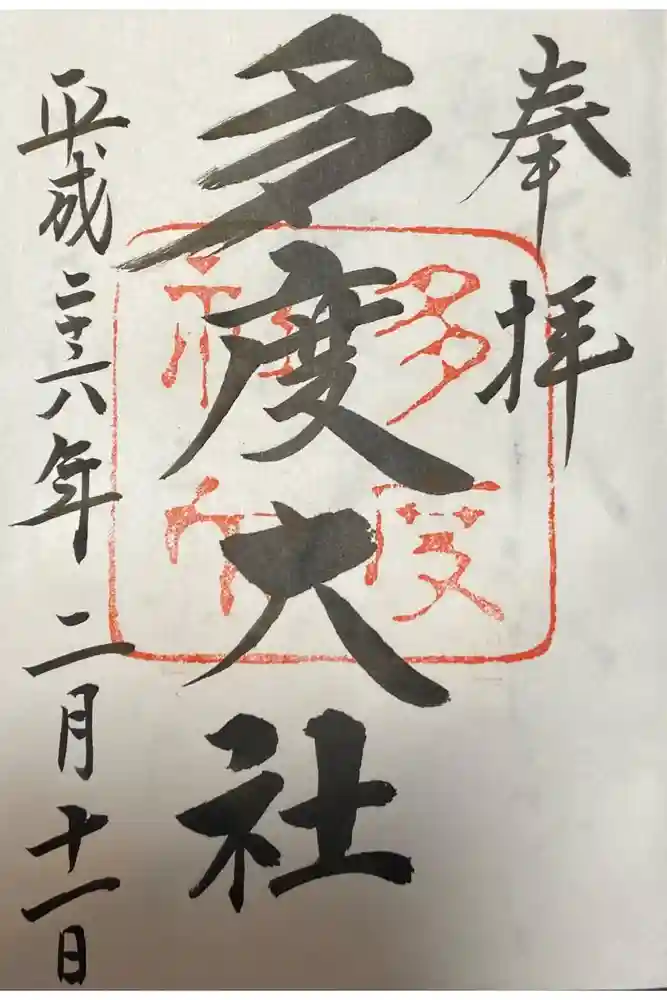 奉拝
多度大社
平成二十六年二月十一日
多度
印